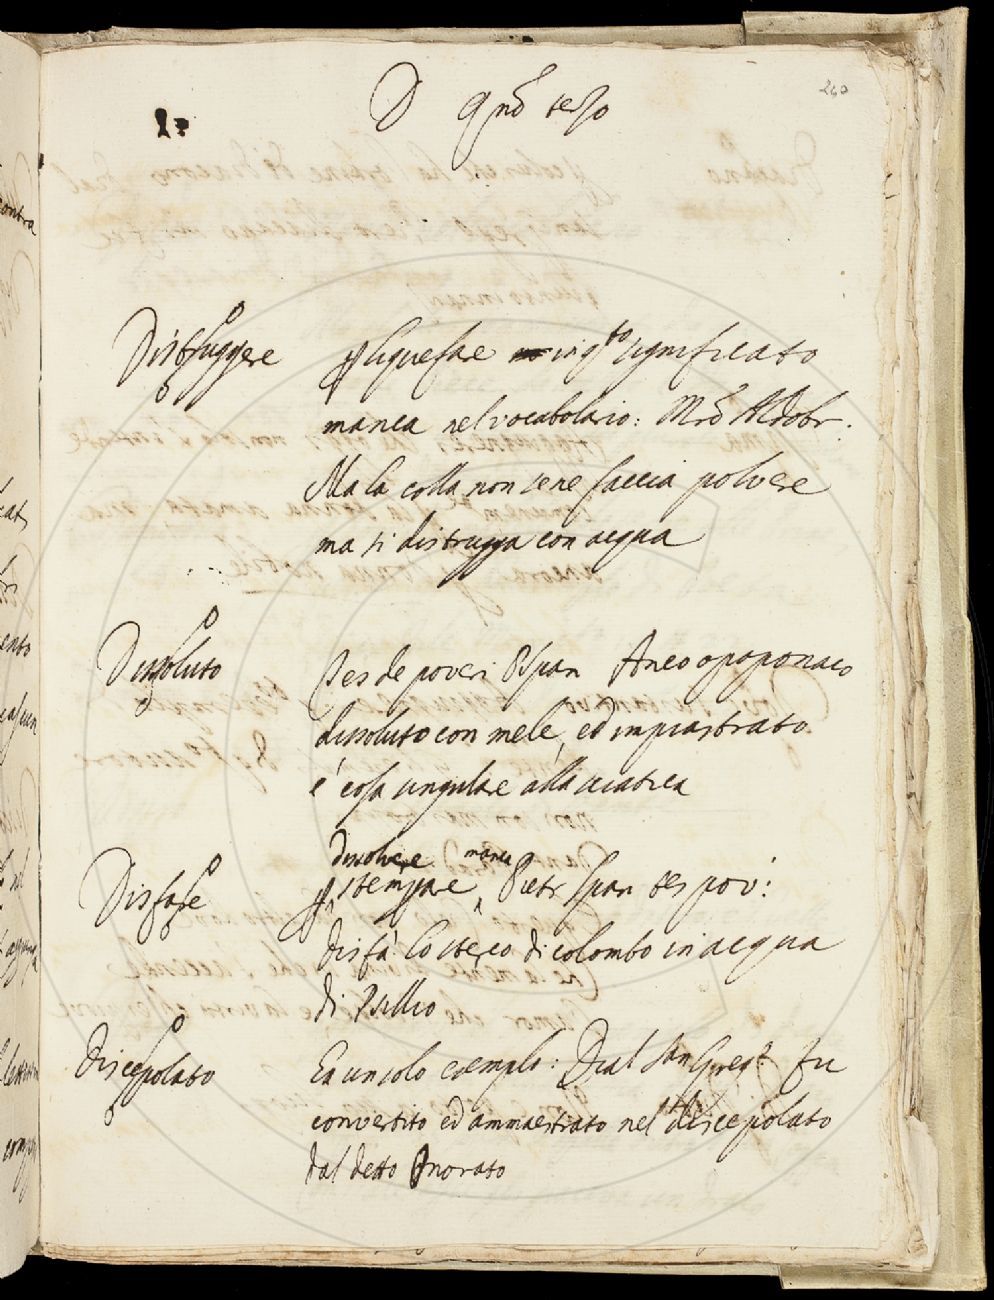 260
D qno terzo
Distruggere
p liquefare in qto significato
manca nel vocabolario: Mro Aldobr.
Ma la colla non se ne faccia polvere
ma si distrugga con acqua
Dissoluto
Tes de poveri P Span Anco opoponaco
dissoluto con mele, ed impiastrato
é cosa singulare alla sciatica
Disfare
dissolvere manca
p stemprare Pietr Span tes pov:
disfà lo sterco di colombo in acqua
di Psillio
Discepolato
Ea un solo esempio: Dial San Greg. Fu
convertito ed ammaestrato nel discepolato
dal detto Onorato